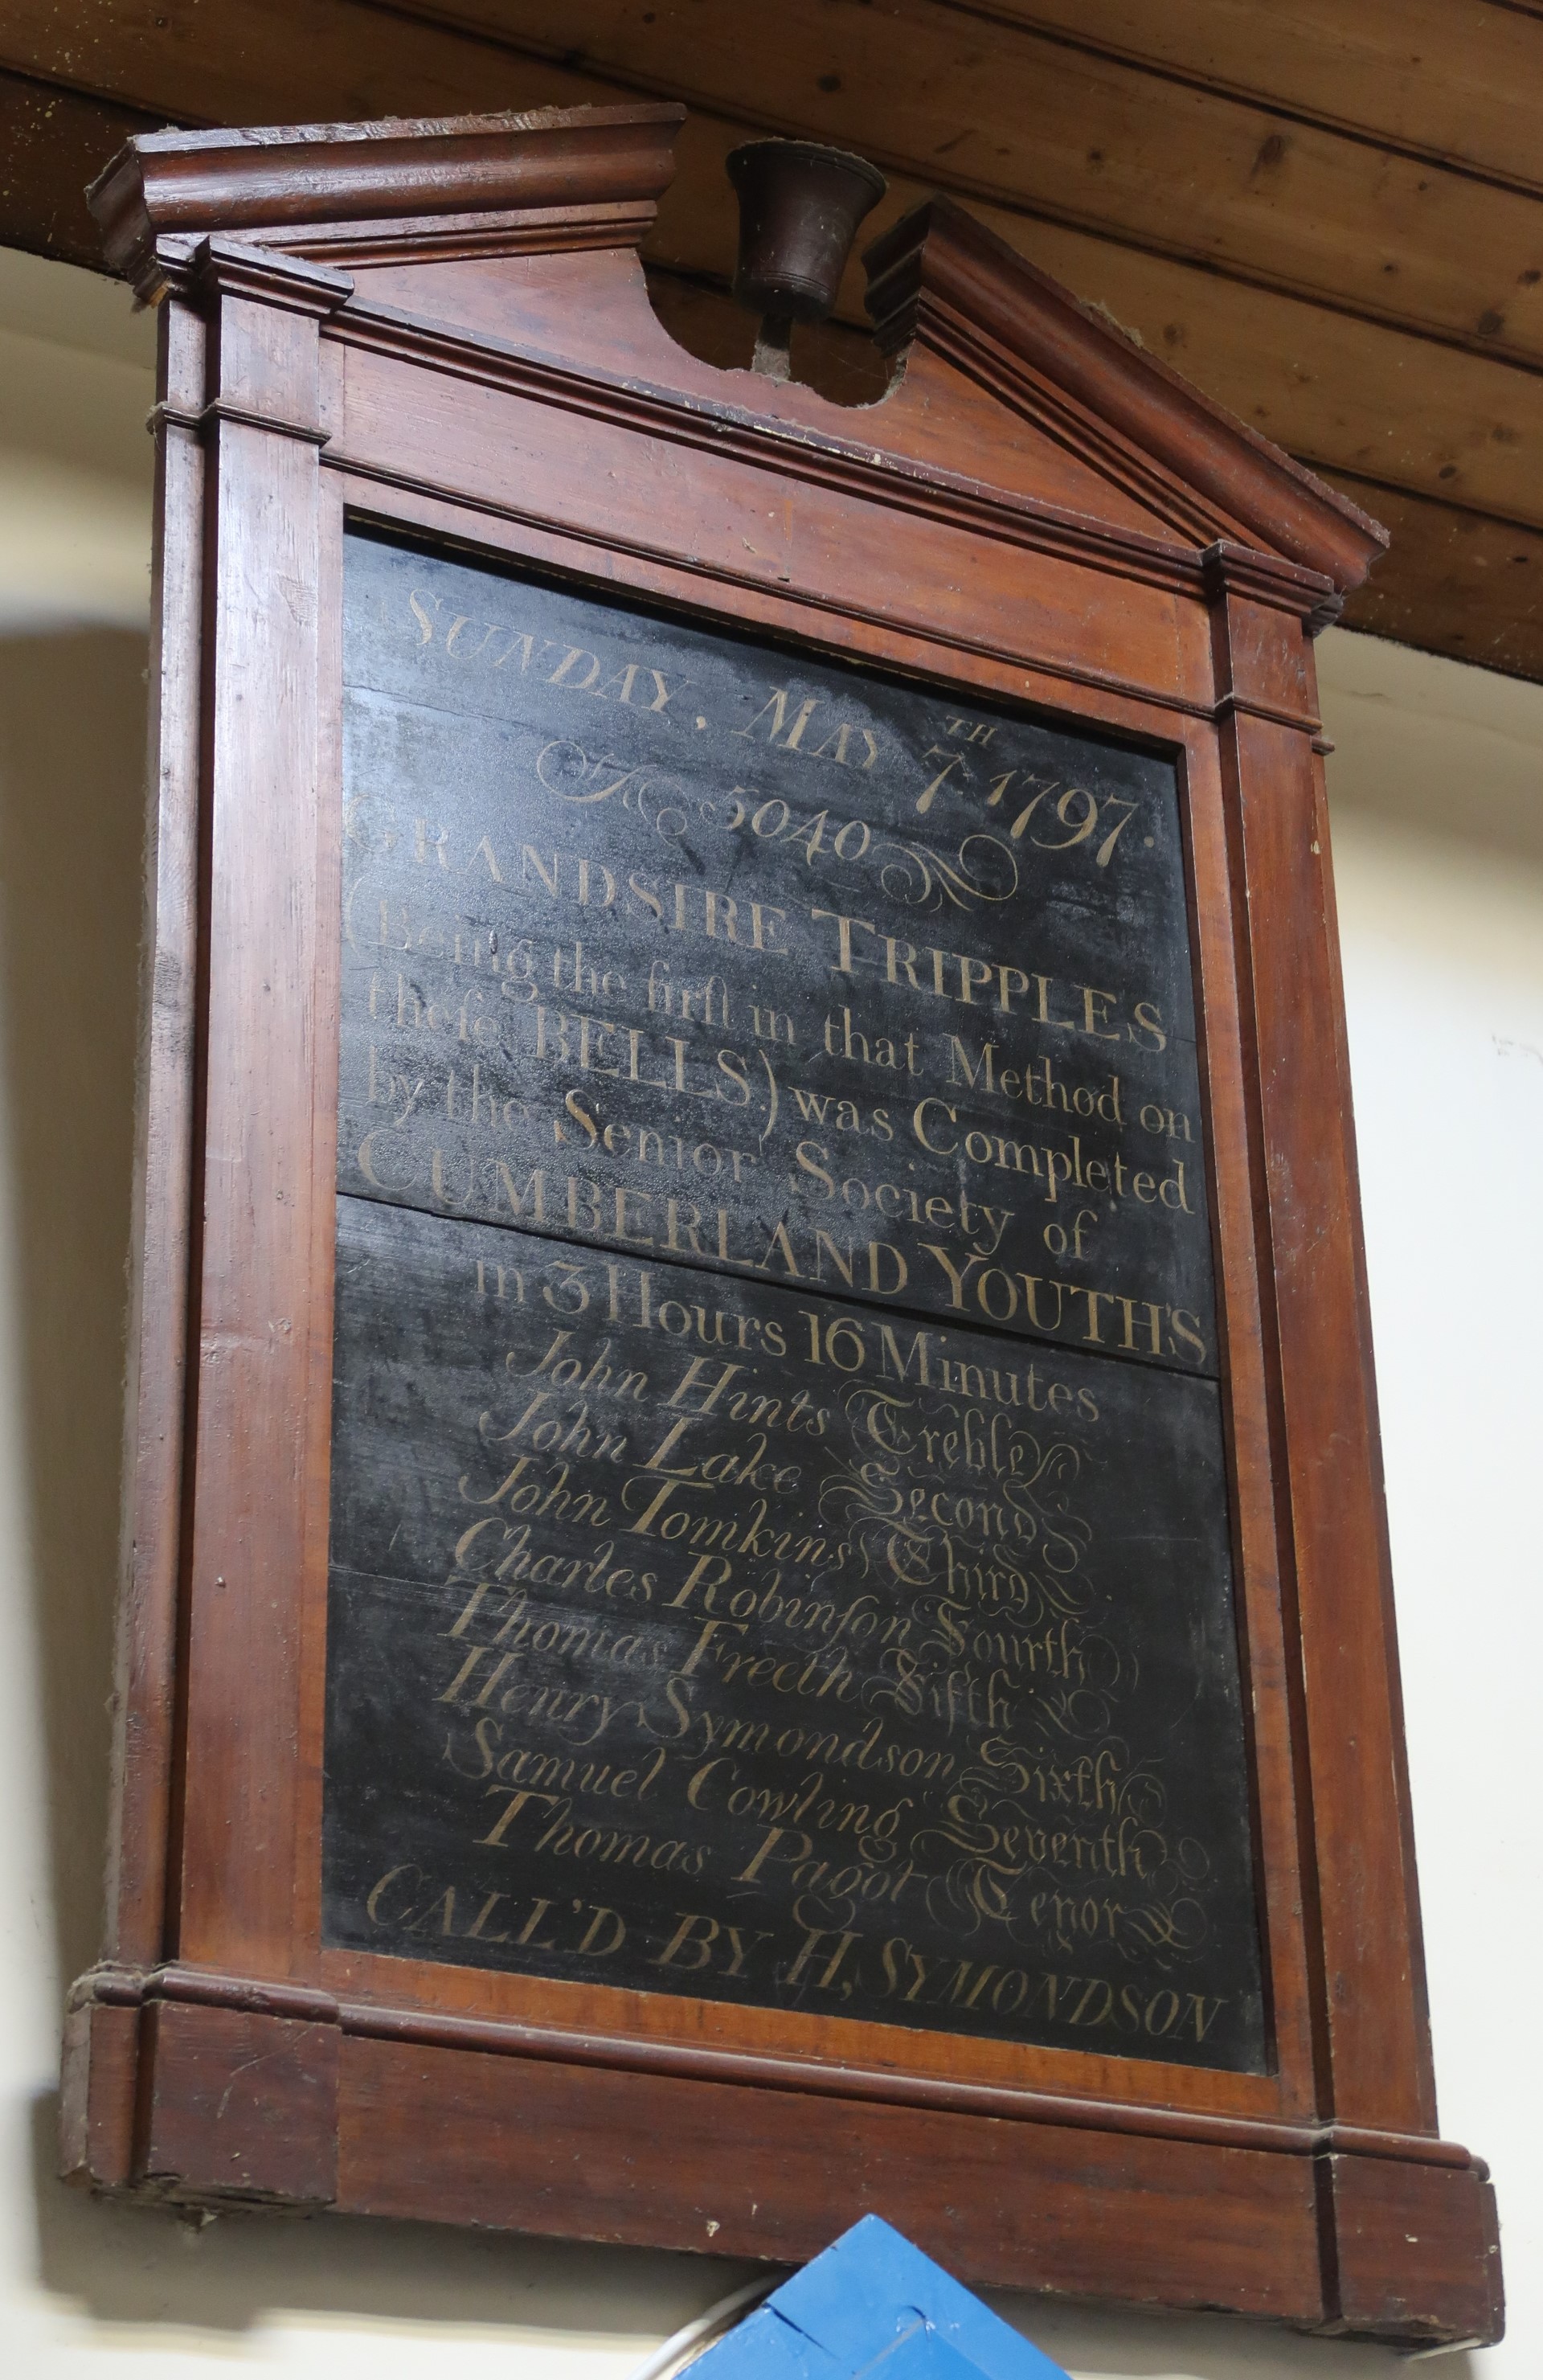 SUNDAY, MAY 7TH 1797.
A 5040
GRANDSIRE TRIPPLES
(Being the firſt in that Method on
theſe BELLS) was Completed
by the Senior Society of
CUMBERLAND YOUTHS
in 3 Hours 16 Minutes
John Hints Treble
John Lake Second
John Tomkins Third
Charles Robinſon Fourth
Thomas Freeth Fifth
Henry Symondson Sixth
Samuel Cowling Seventh
Thomas Pagot Tenor
CALL'D BY H, SYMONDSON